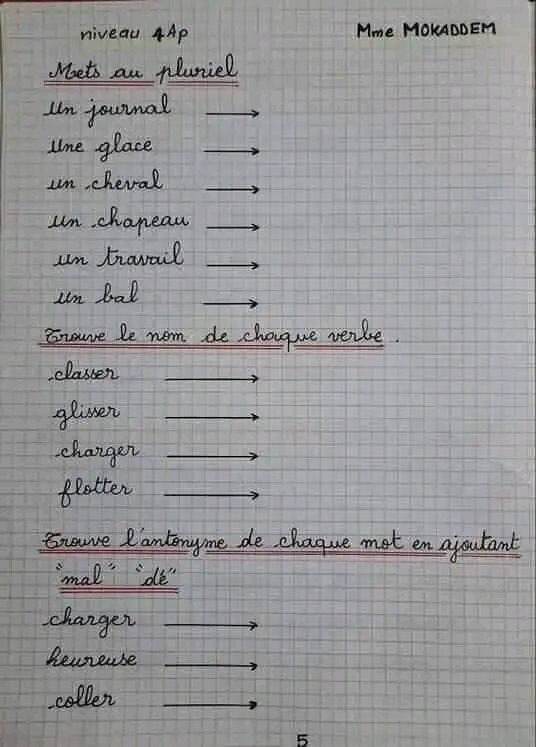 niveau 4Ap Mme MOKADDEM
Mets au pluriel
un journal →
une glace →
un cheval →
un chapeau →
un travail →
un bal →
Trouve le nom de chaque verbe.
classer →
glisser →
charger →
flotter →
Trouve l'antonyme de chaque mot en ajoutant
"mal" "dé"
charger →
heureuse →
coller →
5